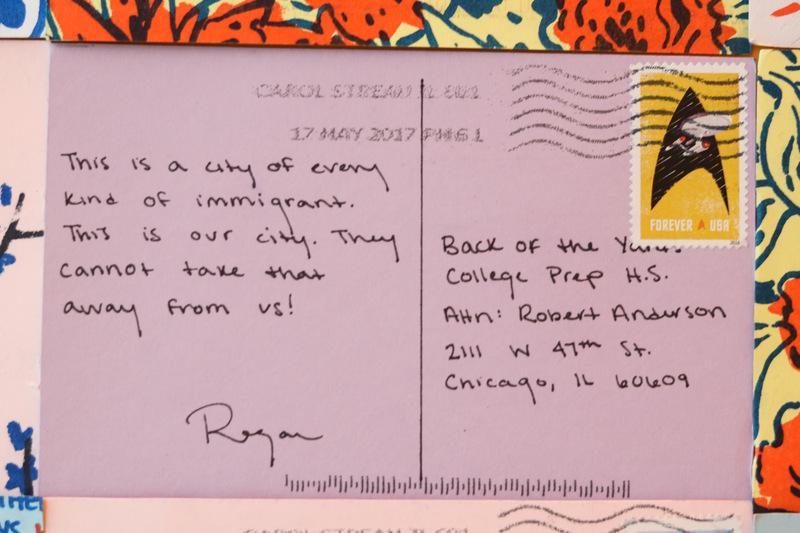 CAROL STREAM IL 601
17 MAY 2017 PM 6 L
This is a city of every
kind of immigrant.
This is our city. They
cannot take that
away from us!
Regan
FOREVER USA
2016
Back of the Yards
College Prep H.S.
Attn: Robert Anderson
2111 W 47th St.
Chicago, IL 60609
CAROL STREAM IL 601